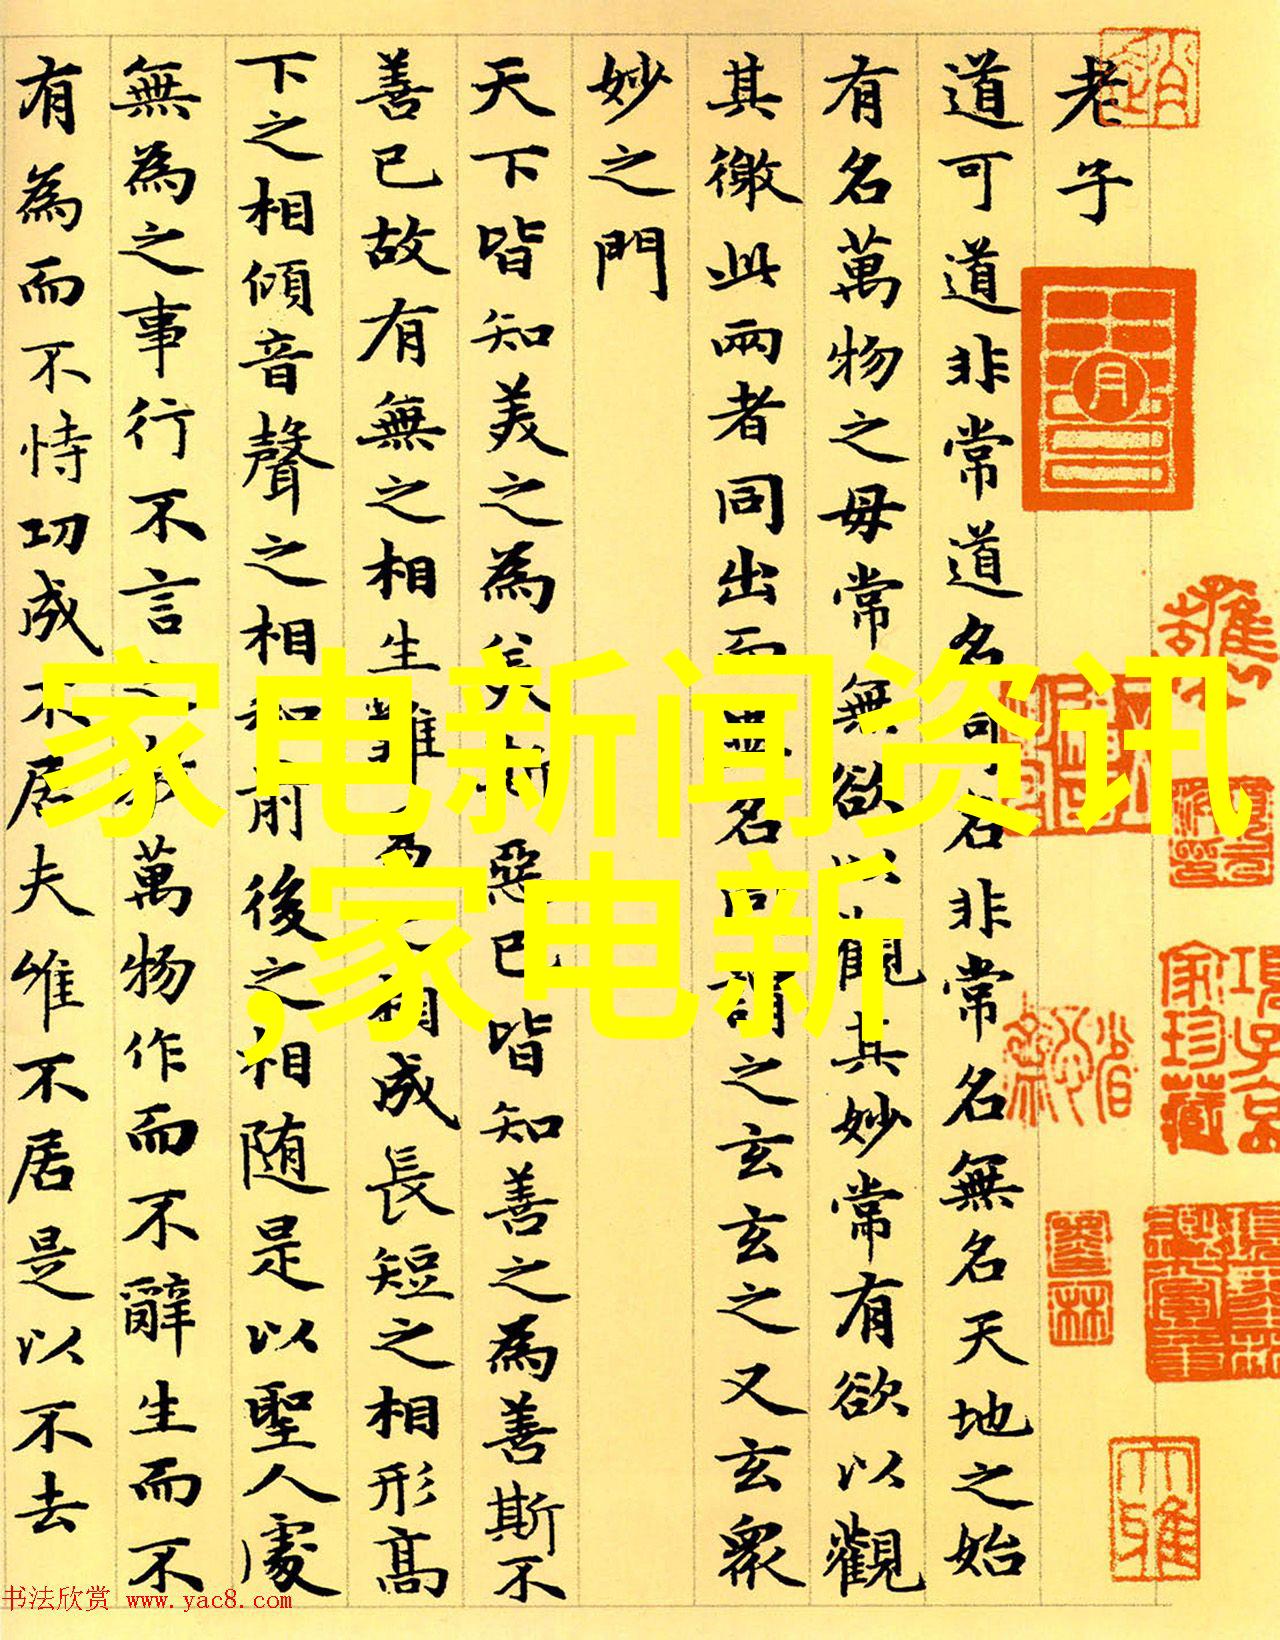 老子
道可道非常道名可名非常名無名天地之始
有名萬物之母常無欲以觀其妙常有欲以觀
其徼此兩者同出而異名同謂之玄玄之又玄衆
妙之門
天下皆知美之為美斯惡已皆知善之為善斯不
善已故有無之相生難易之相成長短之相形高
下之相傾音聲之相和前後之相随是以聖人處
無為之事行不言之教萬物作而不辭生而不
有為而不恃功成不居夫唯不居是以不去
家电新闻资讯
,家电新
項子京
家珍藏
书法欣赏 www.yac8.com